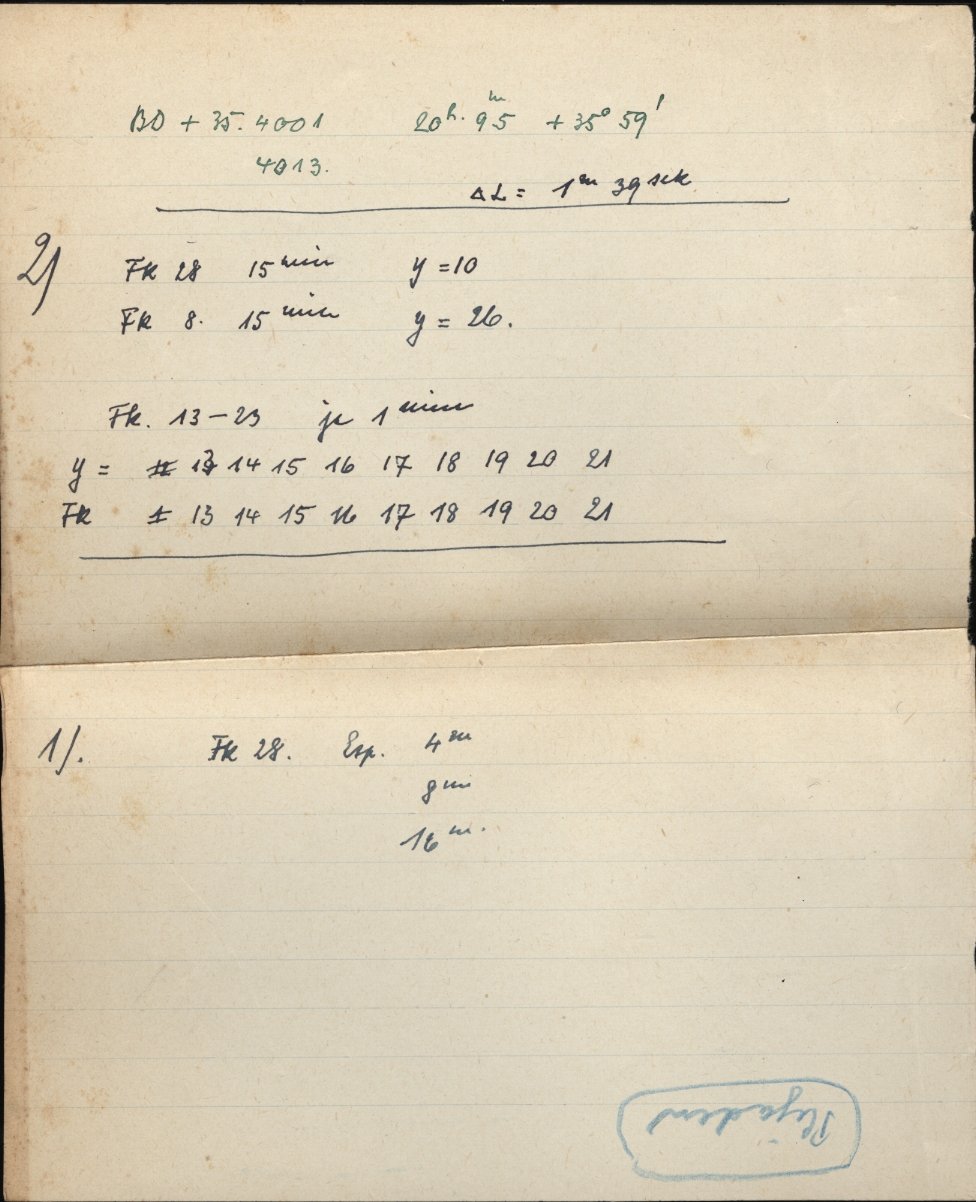 BD + 35. 4001 20h. 95m + 35° 59'
4013.
ΔL = 1m 39 sek
2)
Fk 28 15 min y = 10
Fk 8. 15 min y = 26.
Fk. 13 – 23 je 1 min
y = 13 14 15 16 17 18 19 20 21
Fk 13 14 15 16 17 18 19 20 21
1).
Fk 28. Exp. 4m
8m
16m.
Plejaden